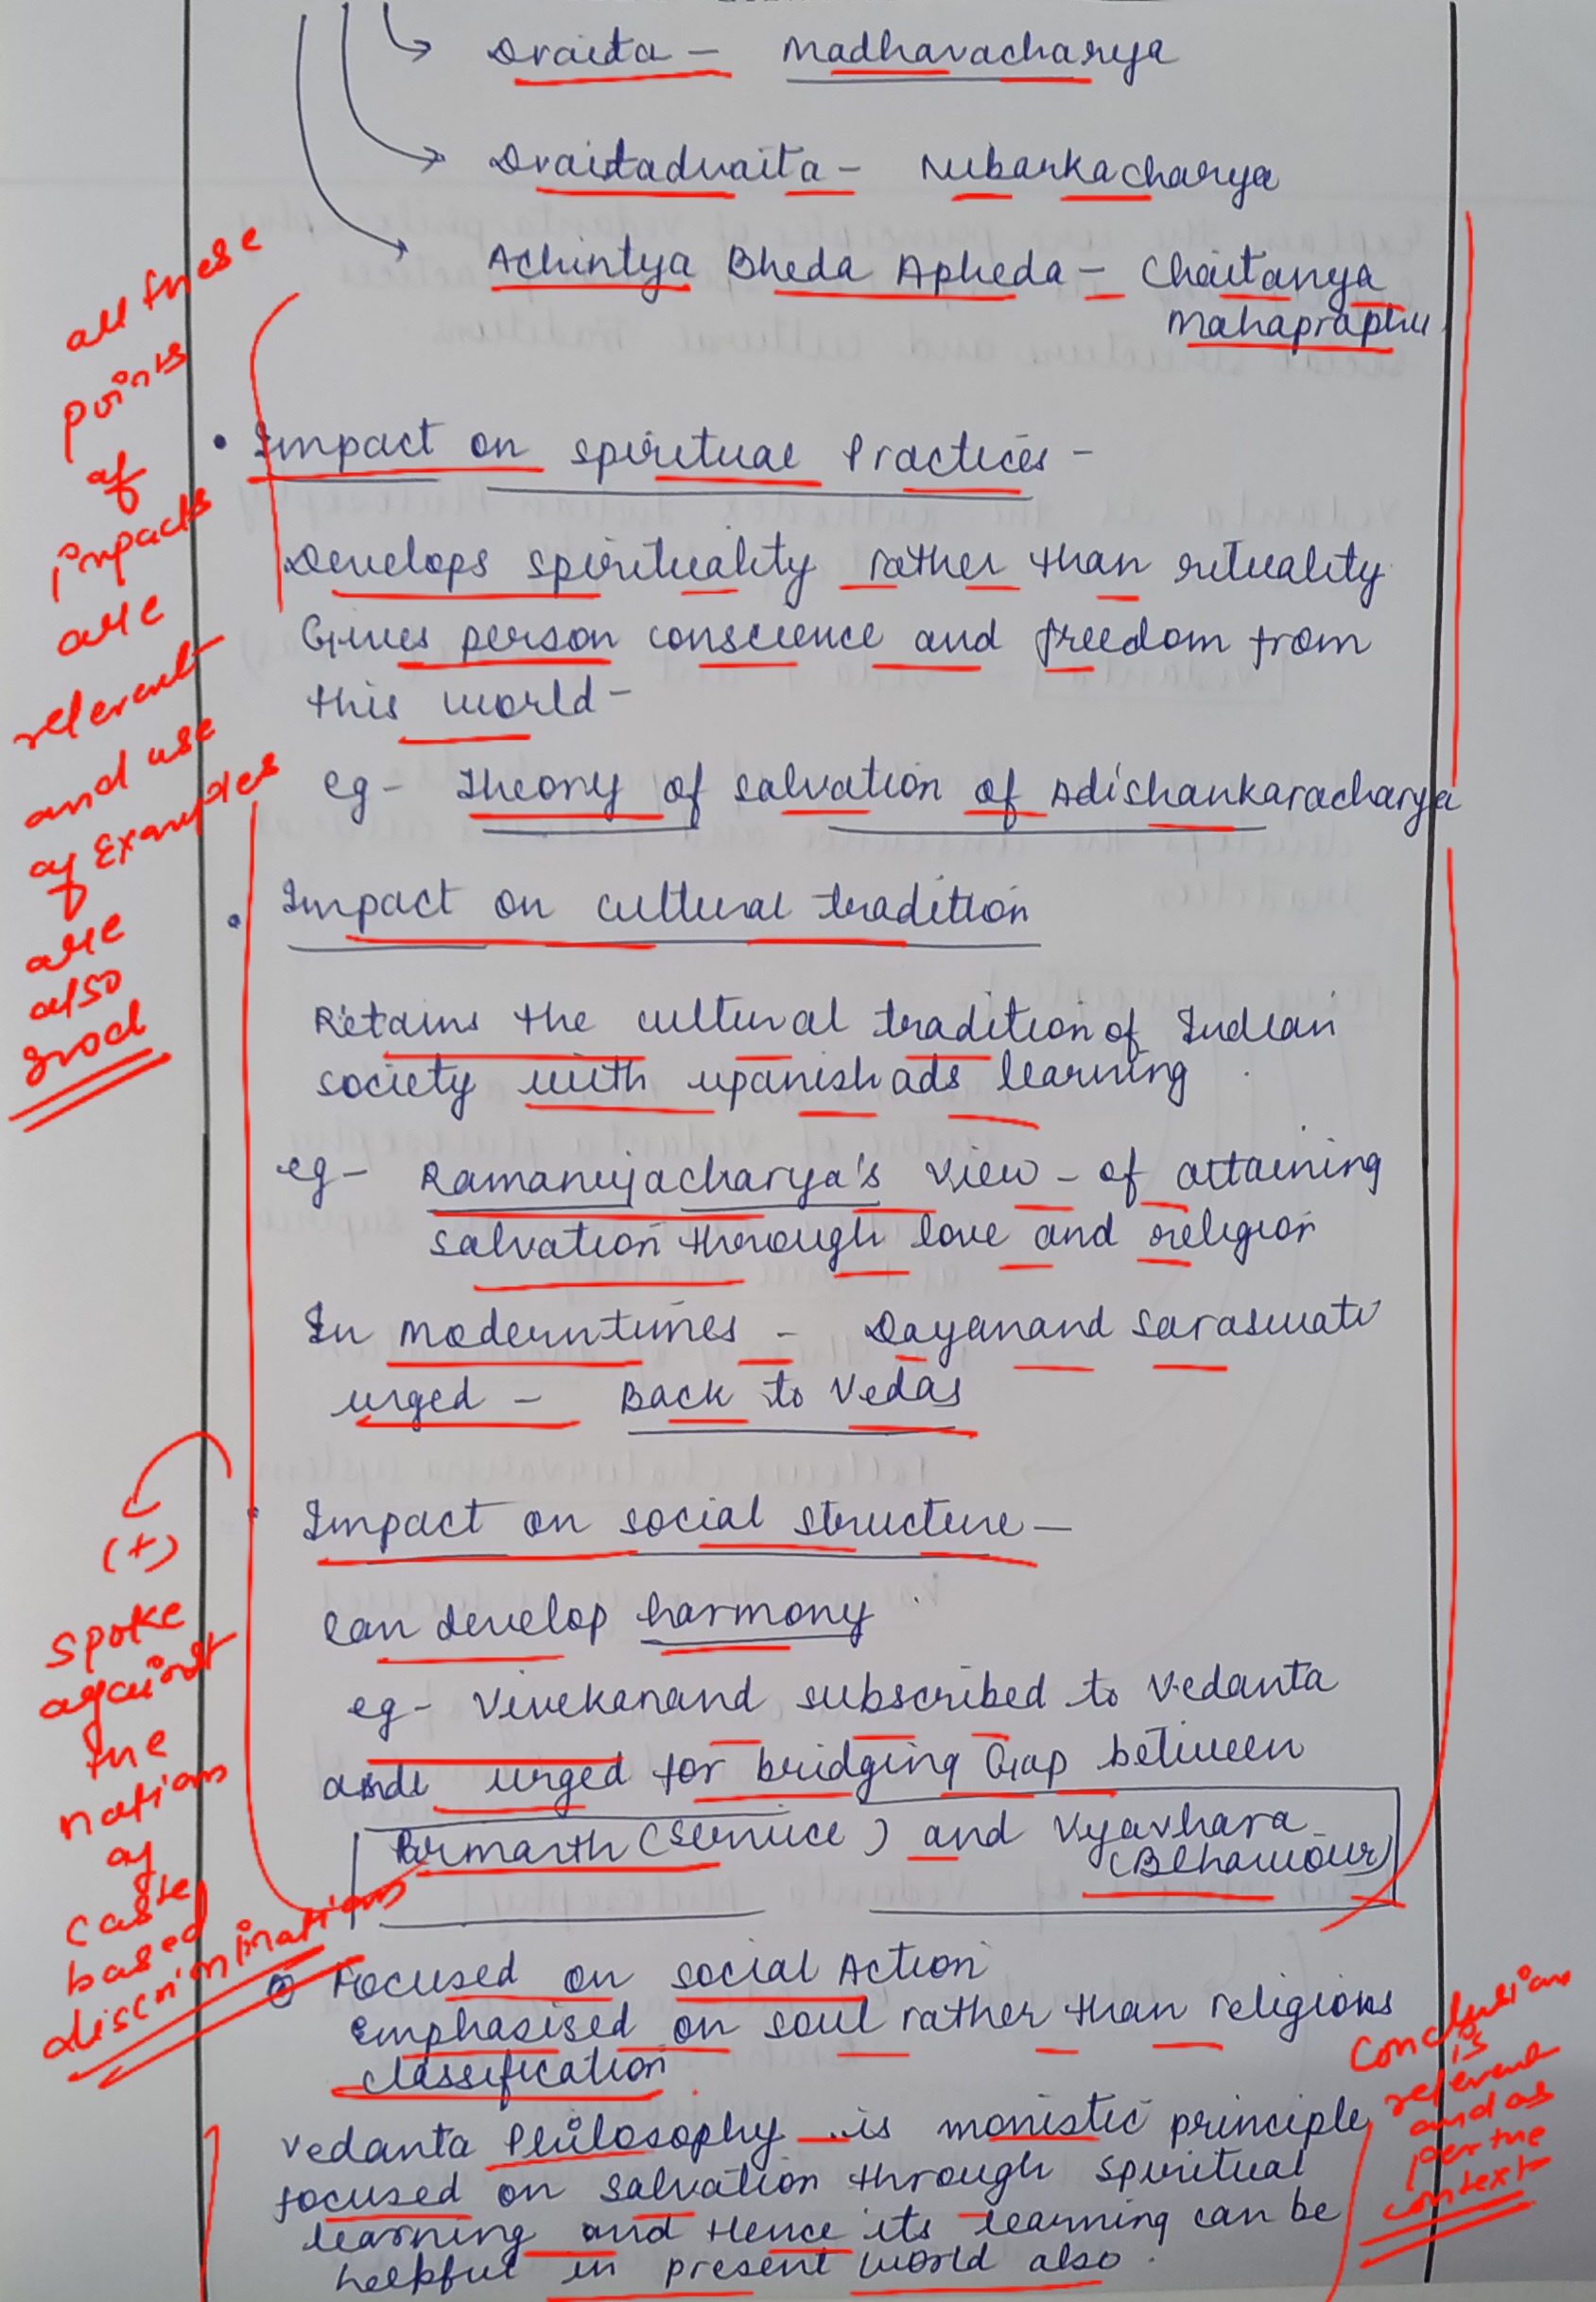 Dvaita - Madhavacharya
Dvaitadvaita - Nibarkacharya
Achintya Bheda Apheda - Chaitanya
Mahapraphu
all these
points
of
impacts
are
relevant
and use
of Examples
are
also
good
• Impact on spiritual Practices -
Develops spirituality rather than rituality
Gives person conscience and freedom from
this world -
eg - Theory of salvation of Adishankaracharya
• Impact on cultural tradition
Retains the cultural tradition of Indian
society with upanishads learning
eg - Ramanujacharya's view - of attaining
salvation through love and religion
In Modern times - Dayanand Saraswati
urged - Back to Vedas
• Impact on social structure -
can develop harmony
eg - Vivekanand subscribed to Vedanta
and urged for bridging Gap between
Parmarth (Service) and Vyavhara
(Behaviour)
(+)
spoke
against
the
notions
of
caste
based
discriminations
Focused on social Action
Emphasised on soul rather than religions
classification
Vedanta Philosophy is monistic principle
focused on salvation through spiritual
learning and Hence its learning can be
helpful in present world also.
Conclusion
is
relevant
and as
per the
context